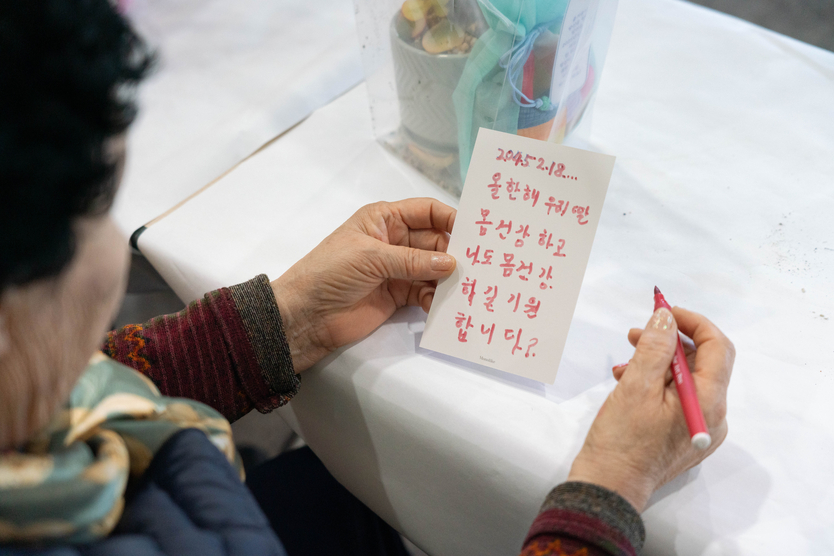 2045.2.18...
올한해 우리 딸
몸선강 하고
너도 몸건강.
학길 기원
합니다?